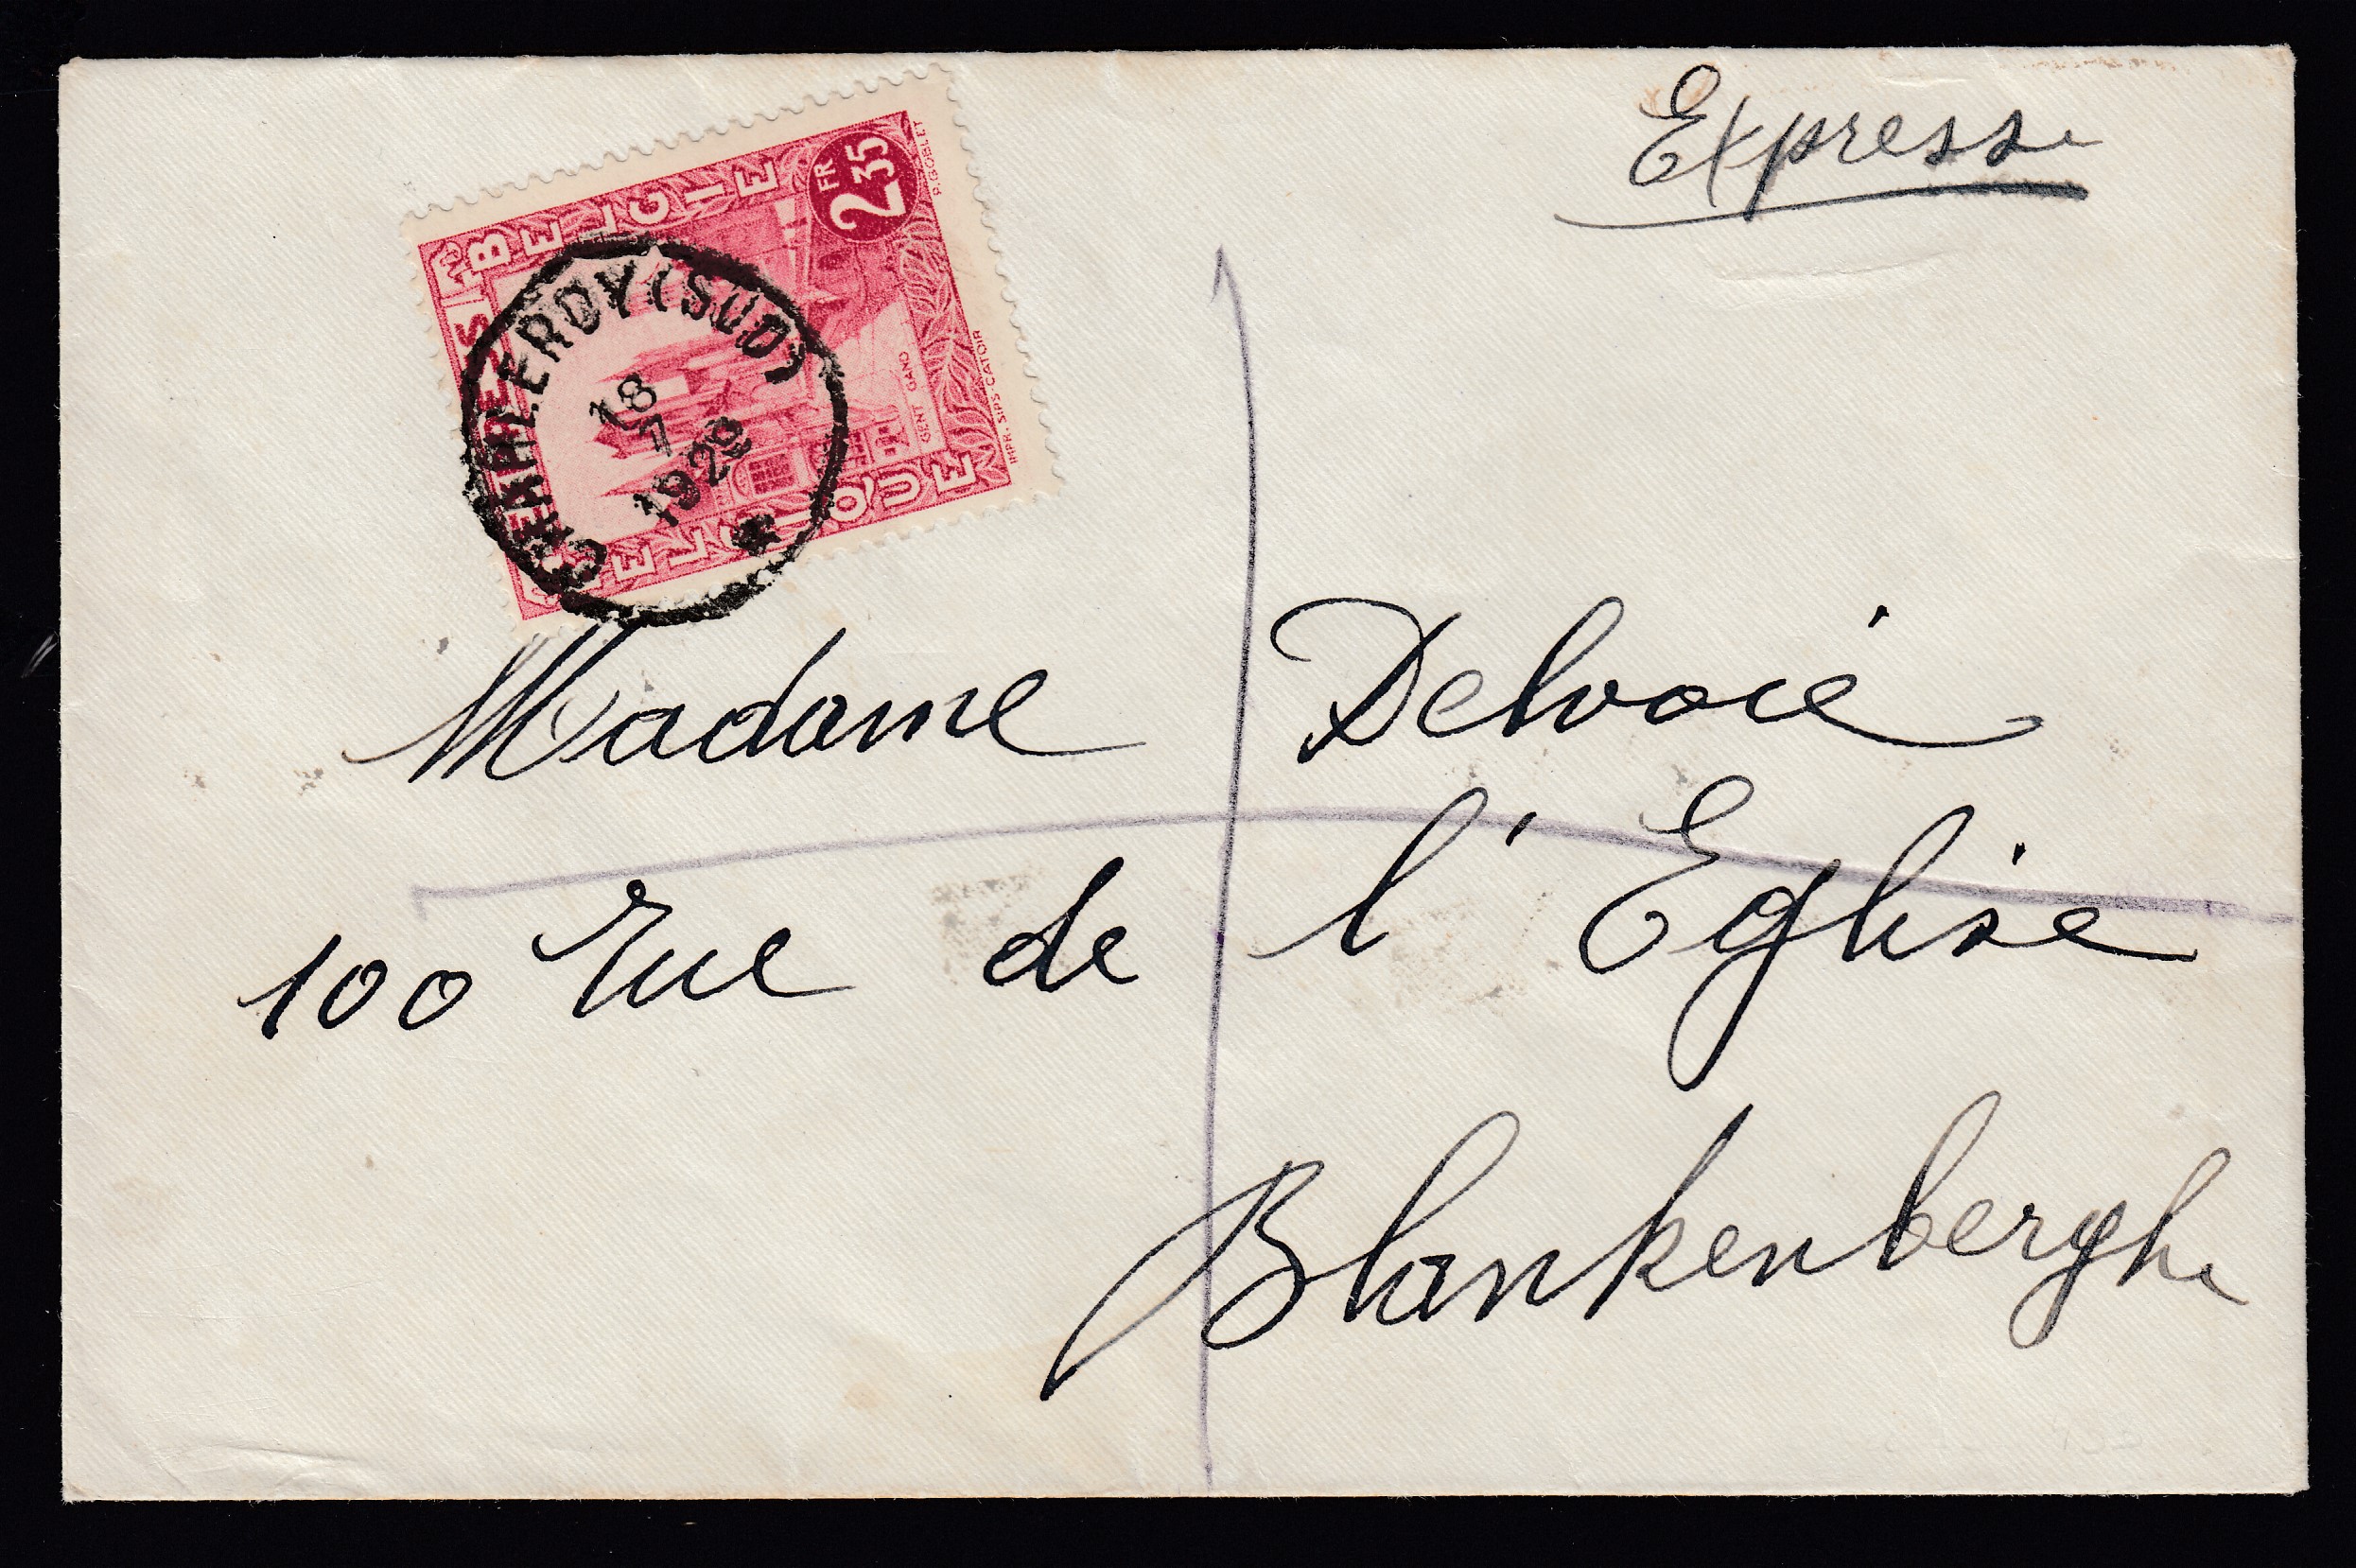 Express
BELGIE
FR 2 35
P.G.OBLET
EXPRES
GENT GAND
IMPR. SIPS. CATOIR
BELGIQUE
CHARLEROY (SUD)
18
7
1929
Madame Delvoie
100 rue de l'Eglise
Blankenberghe